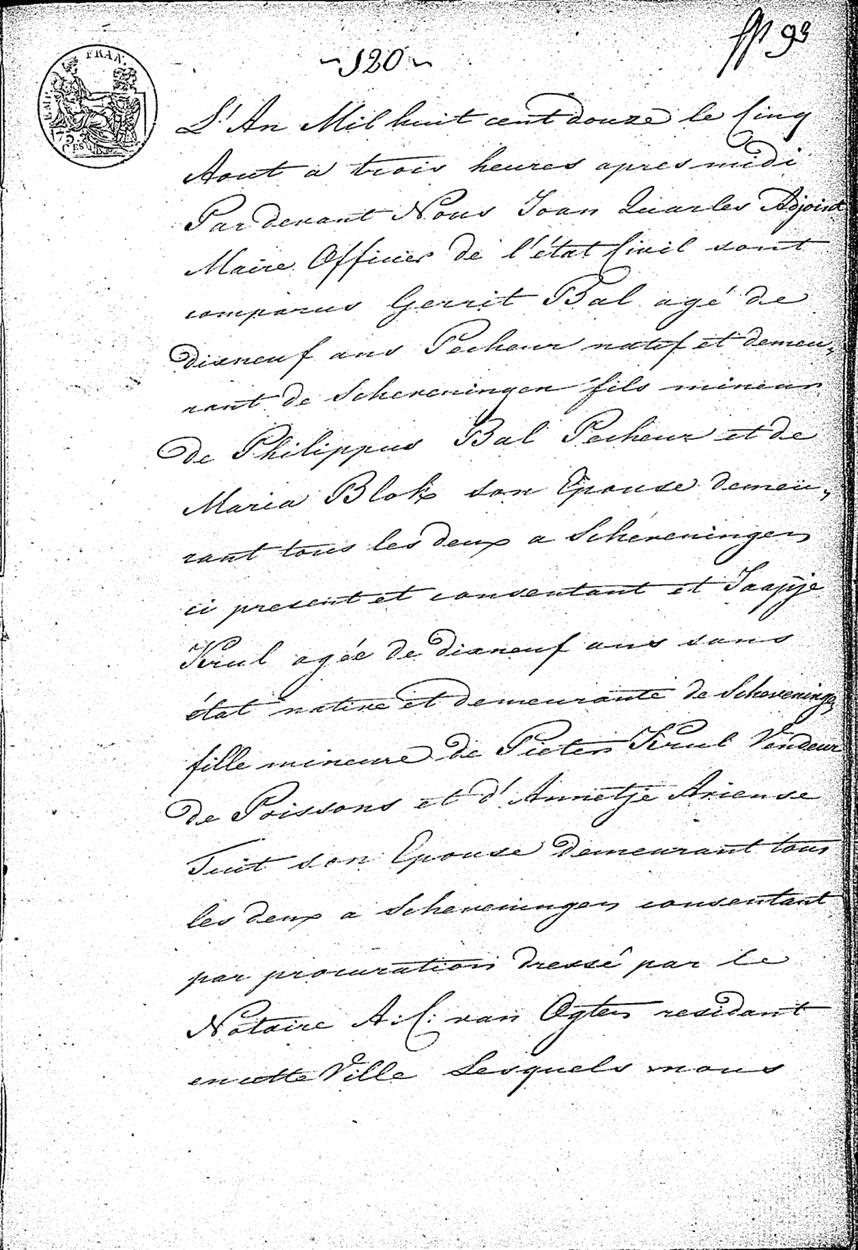 ~120~
93
EMP. FRAN.
L'An Mil huit cent douze le Cinq
Aout a trois heures apres midi
Par devant Nous Joan Quarles Adjoint
Maire Officier de l'état Civil sont
comparus Gerrit Bal agé de
dixneuf ans Pecheur natif et demeu,
rant de Scheveningen fils mineur
de Philippus Bal Pecheur et de
Maria Blok son Epouse demeu,
rant tous les deux a Scheveningen
ci present et consentant et Jaapje
Krul agée de dixneuf ans sans
état native et demeurante de Scheveninge
fille mineure de Pieter Krul Vendeur
de Poissons et d'Annetje Ariense
Tuit son Epouse demeurant tous
les deux a Scheveningen consentant
par procuration dressé par le
Notaire A: C: van Ogten residant
en cette Ville Lesquels nous